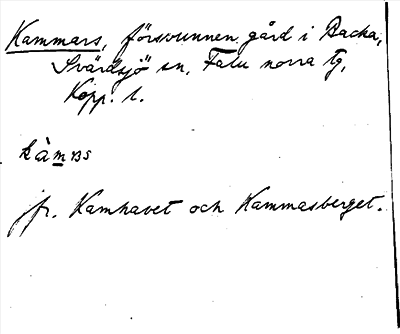 Kammars, försvunnen gård i Backa,
Svärdsjö sn, Falu norra tg,
Kopp. l.
kàmas
jfr. Kamhavet och Kammasberget.